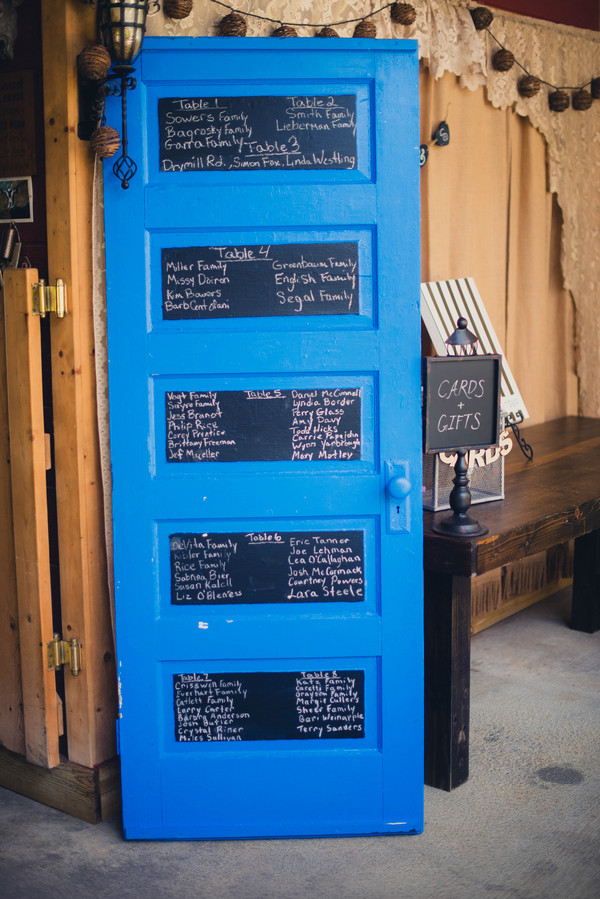 Table 1
Sowers Family
Bagrosky Family
Garra Family
Table 2
Smith Family
Lieberman Family
Table 3
Drymill Rd., Simon Fox, Linda Westling
Table 4
Miller Family
Missy Doiron
Kim Bowers
Barb Centofani
Greenbaum Family
English Family
Segal Family
Table 5
Vogt Family
Family
Jess Brandt
Philip Rice
Corey Prentice
Brittany Freeman
Jef Mueller
Daniel McConnell
Lynda Border
Perry Glass
Amy Davy
Todd Hicks
Carrie
Wynn Yarbrough
Mary Motley
Table 6
DeVita Family
Kibler Family
Rice Family
Sabrina Bier
Susan Kalcll
Liz O'Bleness
Eric Tanner
Joe Lehman
Lea O'Callaghan
Josh McCormack
Courtney Powers
Lara Steele
Table 7
Crisswell Family
Everhart Family
Catlett Family
Larry Carter
Barbra Anderson
Josh Butler
Crystal Riner
Miles Sullivan
Table 8
Katz Family
Caretti Family
Grayson Family
Margie Cullers
Sheer Family
Bari Weinapple
Terry Sanders
CARDS
+
GIFTS
CARDS